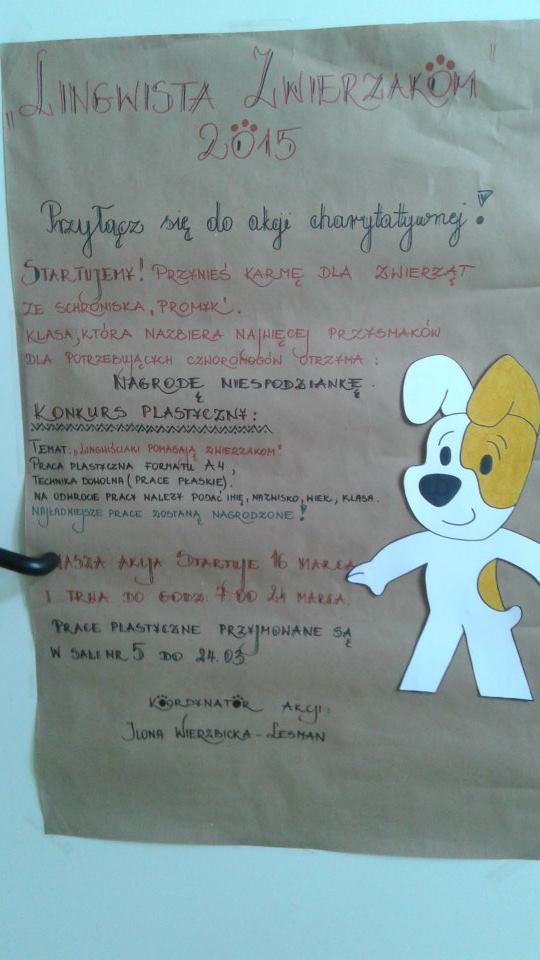 „Lingwista Zwierzakom"
2015
Przyłącz się do akcji charytatywnej!
Startujemy! Przynieś karmę dla zwierząt
ze schroniska „Promyk".
Klasa, która nazbiera najwięcej przysmaków
dla potrzebujących czworonogów otrzyma:
nagrodę niespodziankę.
Konkurs plastyczny:
Temat: „Lingwiściaki pomagają zwierzakom"
Praca plastyczna formatu A4,
Technika dowolna (prace płaskie).
Na odwrocie pracy należy podać imię, nazwisko, wiek, klasa.
Najładniejsze prace zostaną nagrodzone!
Nasza akcja startuje 16 marca
i trwa do godz. 7:00 24 marca.
Prace plastyczne przyjmowane są
w sali nr 5 do 24.03
Koordynator akcji:
Ilona Wierzbicka-Lesman